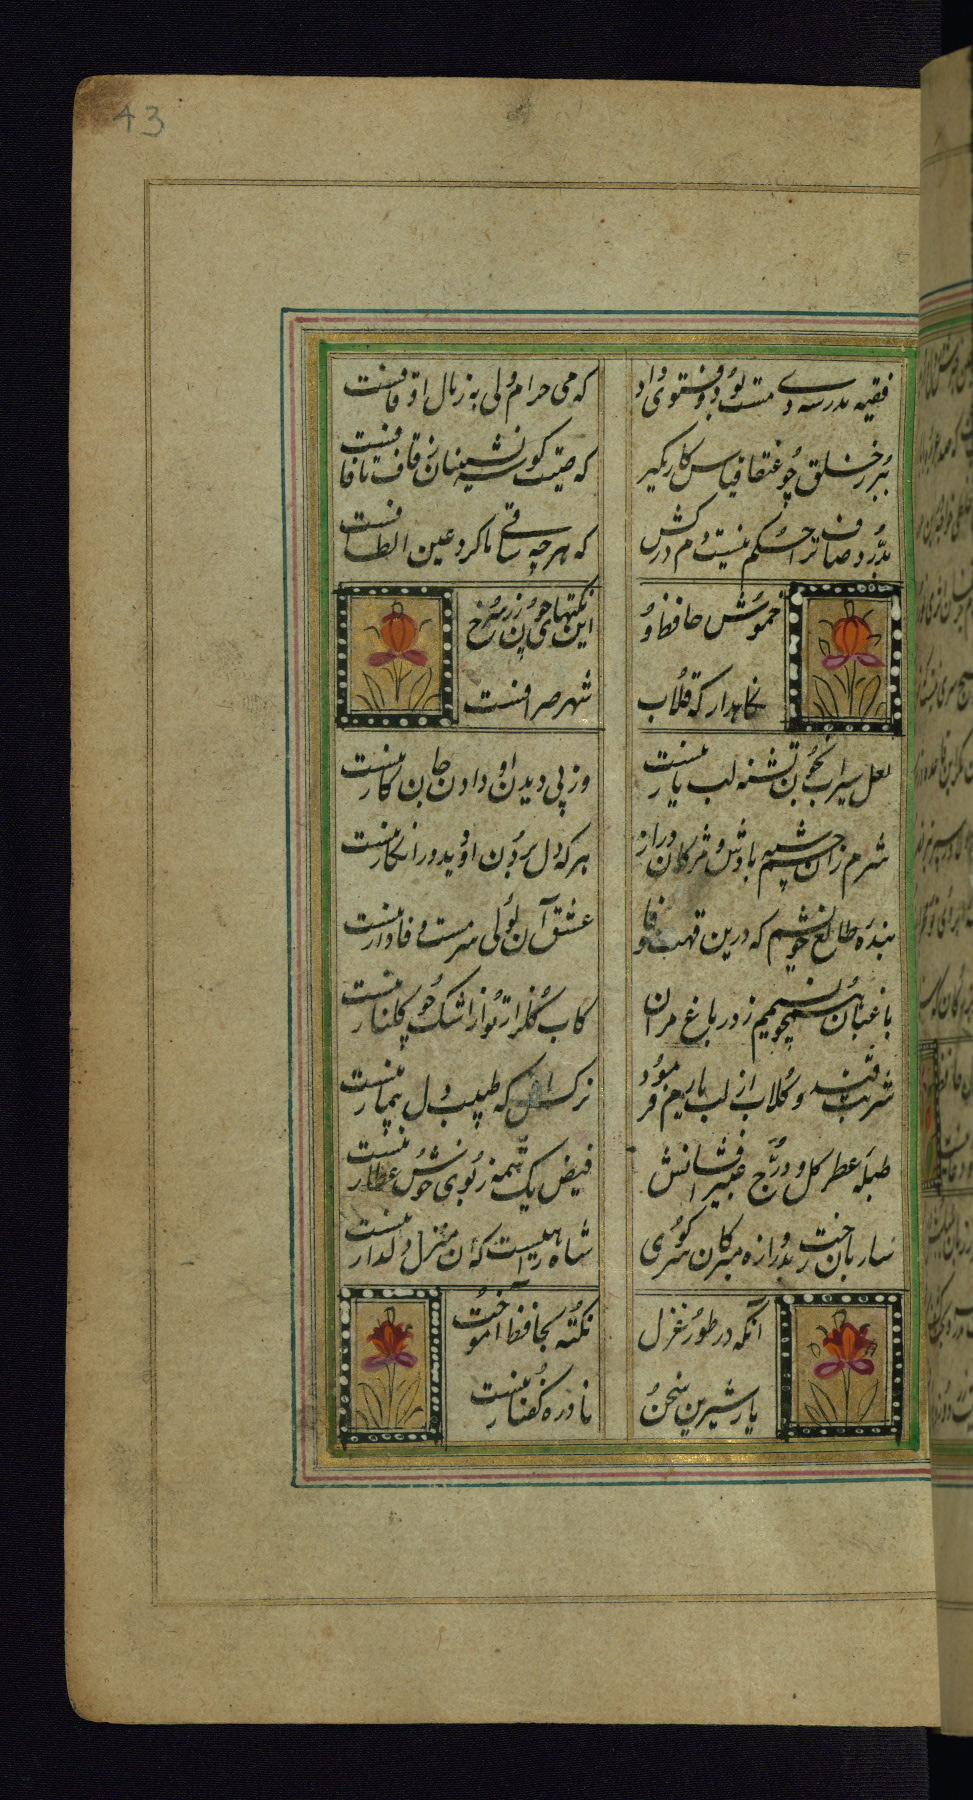 43
فقیه مدرسه دی مست بود و فتوی داد
که می حرام ولی به ز مال اوقافست
ببر ز خلق چو عنقا قیاس کار بگیر
که صیت گوشه نشینان ز قاف تا قافست
بدرد و صاف ترا حکم نیست دم درکش
که هر چه ساقی ما کرد عین الطافست
خموش حافظ و
این نکتهای چون زر سرخ
نگاهدار که قلاب
شهر صرافست
لعل سیراب بخون تشنه لب یار منست
وز پی دیدن او دادن جان کار منست
شرم زان چشم سیه بادش و مژگان دراز
هر که دل بردن او دید و در انکار منست
بنده طالع خویشم که درین قحط وفا
عشق آن لولی سرمست وفادار منست
باغبان همچو نسیمم ز در باغ مران
کاب گلزار تو از اشک چو گلنار منست
شربت قند و گلاب از لب یارم فرمود
نرگس که طبیب دل بیمار منست
طبله عطر گل و درج عبیر افشانش
فیض یک شمه ز بوی خوش عطار منست
ساربان رخت بدروازه مبر کان سر کوی
شاه راهیست که آن منزل دلدار منست
آنکه در طور غزل
نکته بحافظ آموخت
یار شیرین سخن
نادره گفتار منست